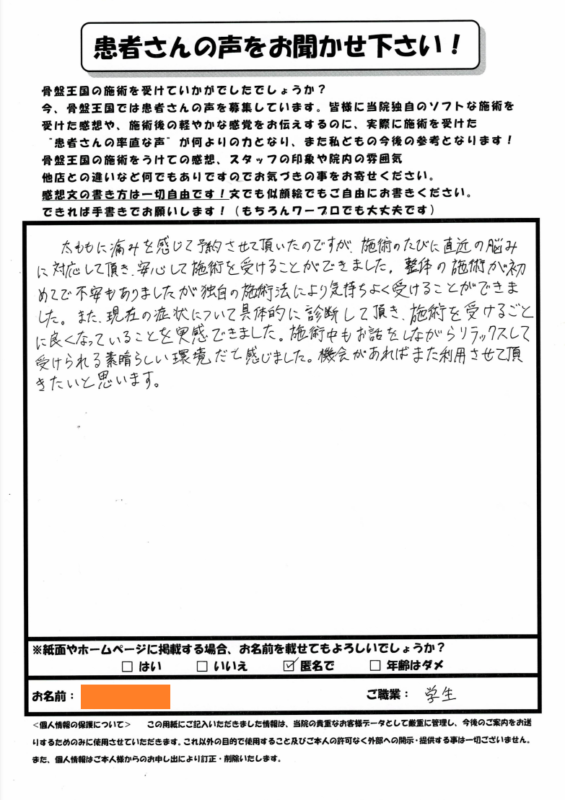 患者さんの声をお聞かせ下さい！
骨盤王国の施術を受けていかがでしたでしょうか？
今、骨盤王国では患者さんの声を募集しています。皆様に当院独自のソフトな施術を
受けた感想や、施術後の軽やかな感覚をお伝えするのに、実際に施術を受けた
"患者さんの率直な声"が何よりの力となり、また私どもの今後の参考となります！
骨盤王国の施術をうけての感想、スタッフの印象や院内の雰囲気
他店との違いなど何でもありですのでお気づきの事をお寄せください。
感想文の書き方は一切自由です！文でも似顔絵でもご自由にお書きください。
できれば手書きでお願いします！（もちろんワープロでも大丈夫です）
太ももに痛みを感じて予約させて頂いたのですが、施術のたびに直近の悩み
に対応して頂き、安心して施術を受けることができました。整体の施術が初
めてで不安もありましたが独自の施術法により気持ちよく受けることができま
した。また、現在の症状について具体的に診断して頂き、施術を受けるごと
に良くなっていることを実感できました。施術中もお話をしながらリラックスして
受けられる素晴らしい環境だと感じました。機会があればまた利用させて頂
きたいと思います。
※紙面やホームページに掲載する場合、お名前を載せてもよろしいでしょうか？
□ はい □ いいえ ☑ 匿名で □ 年齢はダメ
お名前： ご職業： 学生
＜個人情報の保護について＞ この用紙にご記入いただきました情報は、当院の貴重なお客様データとして厳重に管理し、今後のご案内をお送
りするためのみに使用させていただきます。これ以外の目的で使用すること及びご本人の許可なく外部への開示・提供する事は一切ございません。
また、個人情報はご本人様からのお申し出により訂正・削除いたします。